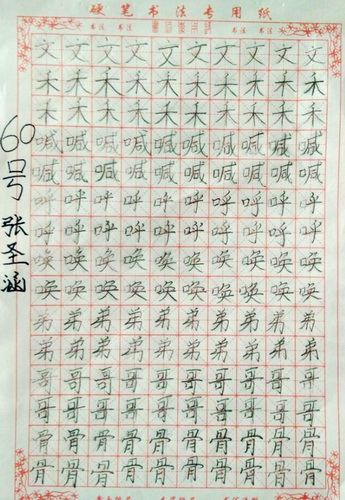 硬笔书法专用纸
文文文文文文文文文文
禾禾禾禾禾禾禾禾禾禾
禾禾禾禾禾禾禾禾禾禾
喊喊喊喊喊喊喊喊喊喊
喊喊喊喊喊喊喊喊喊喊
呼呼呼呼呼呼呼呼呼呼
呼呼呼呼呼呼呼呼呼呼
唤唤唤唤唤唤唤唤唤唤
唤唤唤唤唤唤唤唤唤唤
弟弟弟弟弟弟弟弟弟弟
弟弟弟弟弟弟弟弟弟弟
哥哥哥哥哥哥哥哥哥哥
哥哥哥哥哥哥哥哥哥哥
骨骨骨骨骨骨骨骨骨骨
骨骨骨骨骨骨骨骨骨骨
60号 张圣涵